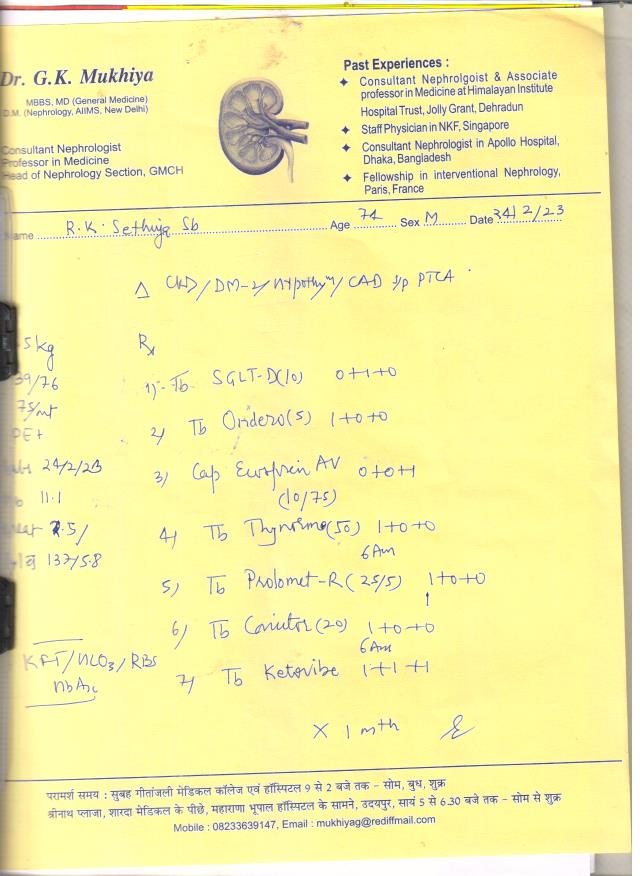 Dr. G.K. Mukhiya
MBBS, MD (General Medicine)
D.M. (Nephrology, AIIMS, New Delhi)
Consultant Nephrologist
Professor in Medicine
Head of Nephrology Section, GMCH
Past Experiences :
Consultant Nephrolgoist & Associate
professor in Medicine at Himalayan Institute
Hospital Trust, Jolly Grant, Dehradun
Staff Physician in NKF, Singapore
Consultant Nephrologist in Apollo Hospital,
Dhaka, Bangladesh
Fellowship in interventional Nephrology,
Paris, France
Name R.K. Sethiya Sb Age 74 Sex M Date 24/2/23
Δ CKD/DM-2/Hypothym/CAD s/p PTCA
5 kg
Rx
39/76
1) Tb SGLT-D(10) 0+1+0
75/mt
2) Tb Oridero(5) 1+0+0
PE+
24/2/23
3) Cap Ecosprin AV 0+0+1
(10/75)
11.1
4) Tb Thynorm(50) 1+0+0
6Am
7.5/
137/5.8
5) Tb Prolomet-R(25/5) 1+0+0
6) Tb (20) 1+0+0
6Am
KFT/HCO3/RBS
HbA1c
7) Tb Ketovibe 1+1+1
X 1 mth
परामर्श समय : सुबह गीतांजली मेडिकल कॉलेज एवं हॉस्पिटल 9 से 2 बजे तक - सोम, बुध, शुक्र
श्रीनाथ प्लाजा, शारदा मेडिकल के पीछे, महाराणा भूपाल हॉस्पिटल के सामने, उदयपुर, सायं 5 से 6.30 बजे तक - सोम से शुक्र
Mobile : 08233639147, Email : mukhiyag@rediffmail.com